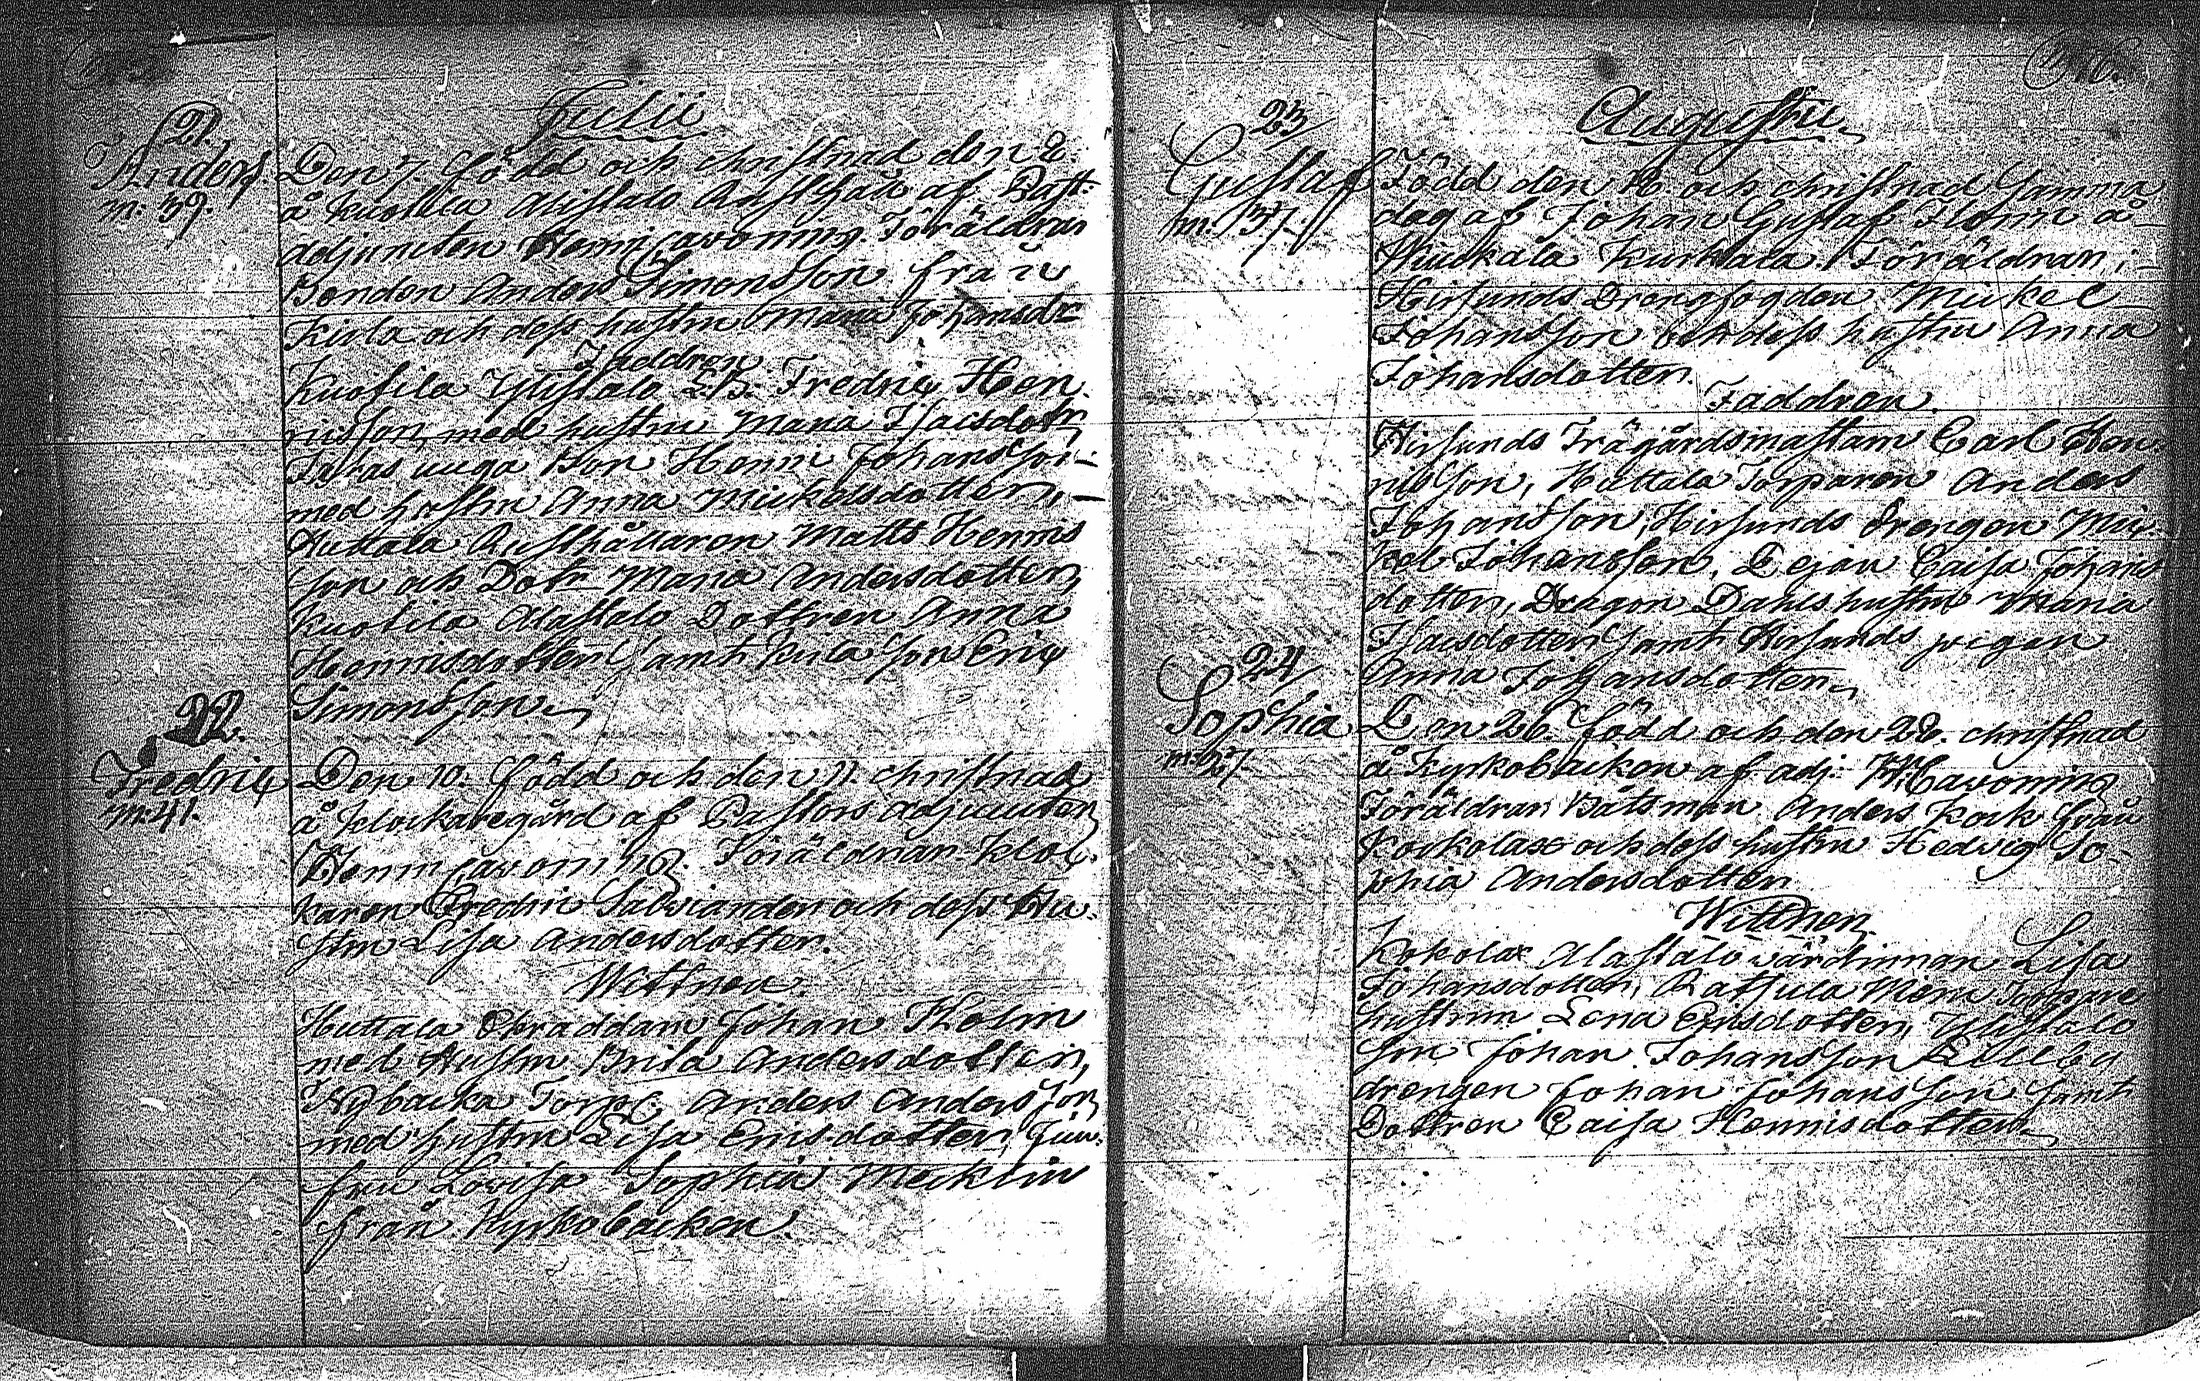 Julii
21.
Anders.
m: 39.
Den 7. född och christnad den 8.
å Kuoila Alistalo Rusthåll af Past:
adjuncten Henric Cavonius. Föräldrar
Bonden Anders Simonsson från
Kirla och dess hustru Maria Johansdr
Faddrar
Yistalo Fredric Hen-
nisson, med hustru Maria Isacsdotr,
Son Henric Johansson
med hustru Anna Mickelsdotter,
Huttala Rusthållaren Matts Hennis
son och Dotr Maria Andersdotter,
Alastalo Dottren Anna
Hennisdotter samt son Eric
Simonsson
22.
Fredric
m: 41.
Den 10. född och den 11. christnad
å Klockaregård af Pastors adjuncten
Henric Cavonius. Föräldrar Kloc-
karen Fredric och dess Hu-
stru Lisa Andersdotter.
Wittnen.
Huttala Skräddarn Johan Holm
med Hustru Brita Andersdotter,
Nybacka Torp: Anders Andersson
med hustru Lisa Erisdotter, Jun-
fru Lovisa Sophia Mecklin
från Kyrkobacken.
Augusti
23
Gustaf
m: 37.
Född den 18. och christnad samma
dag af Johan Gustaf Holm å
Kurkala. Föräldrar,
Hirsunds Drengfogden Mickel
Johansson och dess hustru Anna
Johansdotter.
Faddrar.
Hirsunds Trägårdsmästarn Carl Hen-
nisson, Huttala Torparen Anders
Johansson, Hirsunds drengen Mic-
kel Johansson, Dejan Caisa Johans
dotter, Dragon Dahls hustru Maria
Isacsdotter samt Hirsunds pigan
Anna Johansdotter
24
Sophia
m: 27
Den 26. född och den 28. christnad
å Kyrkobacken af adj: H. Cavonius
Föräldrar Båtsman Anders Kock från
Kockolax och dess hustru Hedvig So-
phia Andersdotter
Wittnen
Kokolax Alastalo värdinnan Lisa
Johansdotter, Torpare
hustrun Lena Erisdotter, Ylistalo
son Johan Johansson Lilleby
drengen Johan Johansson samt
Dottren Caisa Hennisdotter